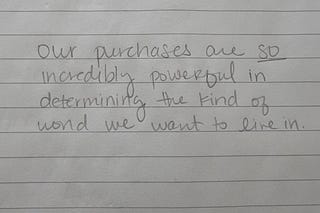 our purchases are so
incredibly powerful in
determining the kind of
world we want to live in.